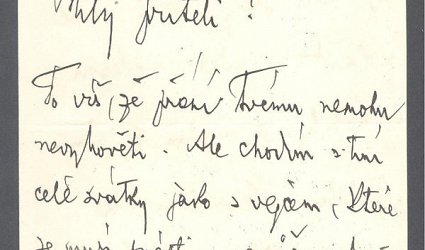 Milý příteli!
To víš, že přání Tvému nemohu
nevyhověti. Ale chodím s tím
celé svátky jako s vejcem, které
se musí